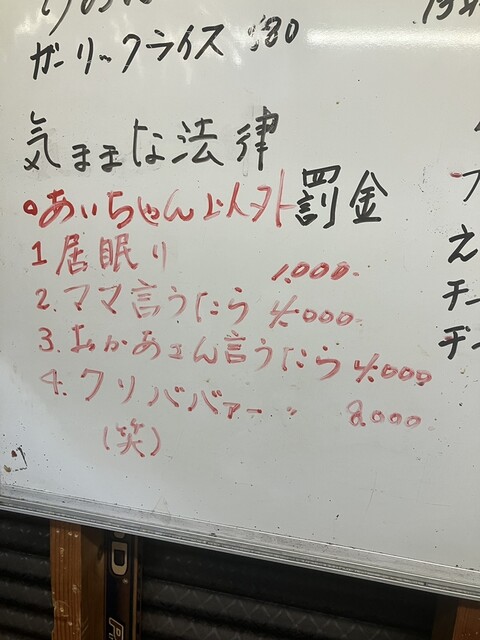 ガーリックライス 580
気ままな法律
○あいちゃん以外罰金
1 居眠り 1,000.
2. ママ言うたら 4,000.
3. おかあさん言うたら 4,000
4. クソババァー 〃 8,000.
(笑)
え
チー